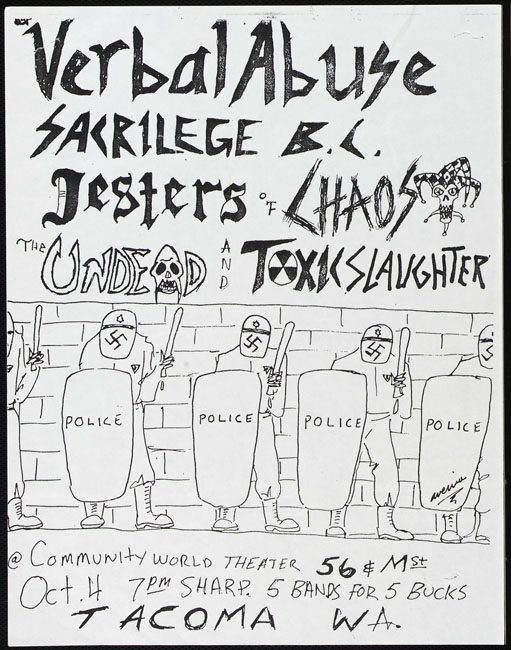 Verbal Abuse
SACRILEGE B.C.
Jesters OF CHAOS
THE UNDEAD AND TOXIC SLAUGHTER
POLICE POLICE POLICE POLICE
@ COMMUNITY WORLD THEATER 56 & M ST
Oct. 4 7PM SHARP. 5 BANDS FOR 5 BUCKS
TACOMA WA.